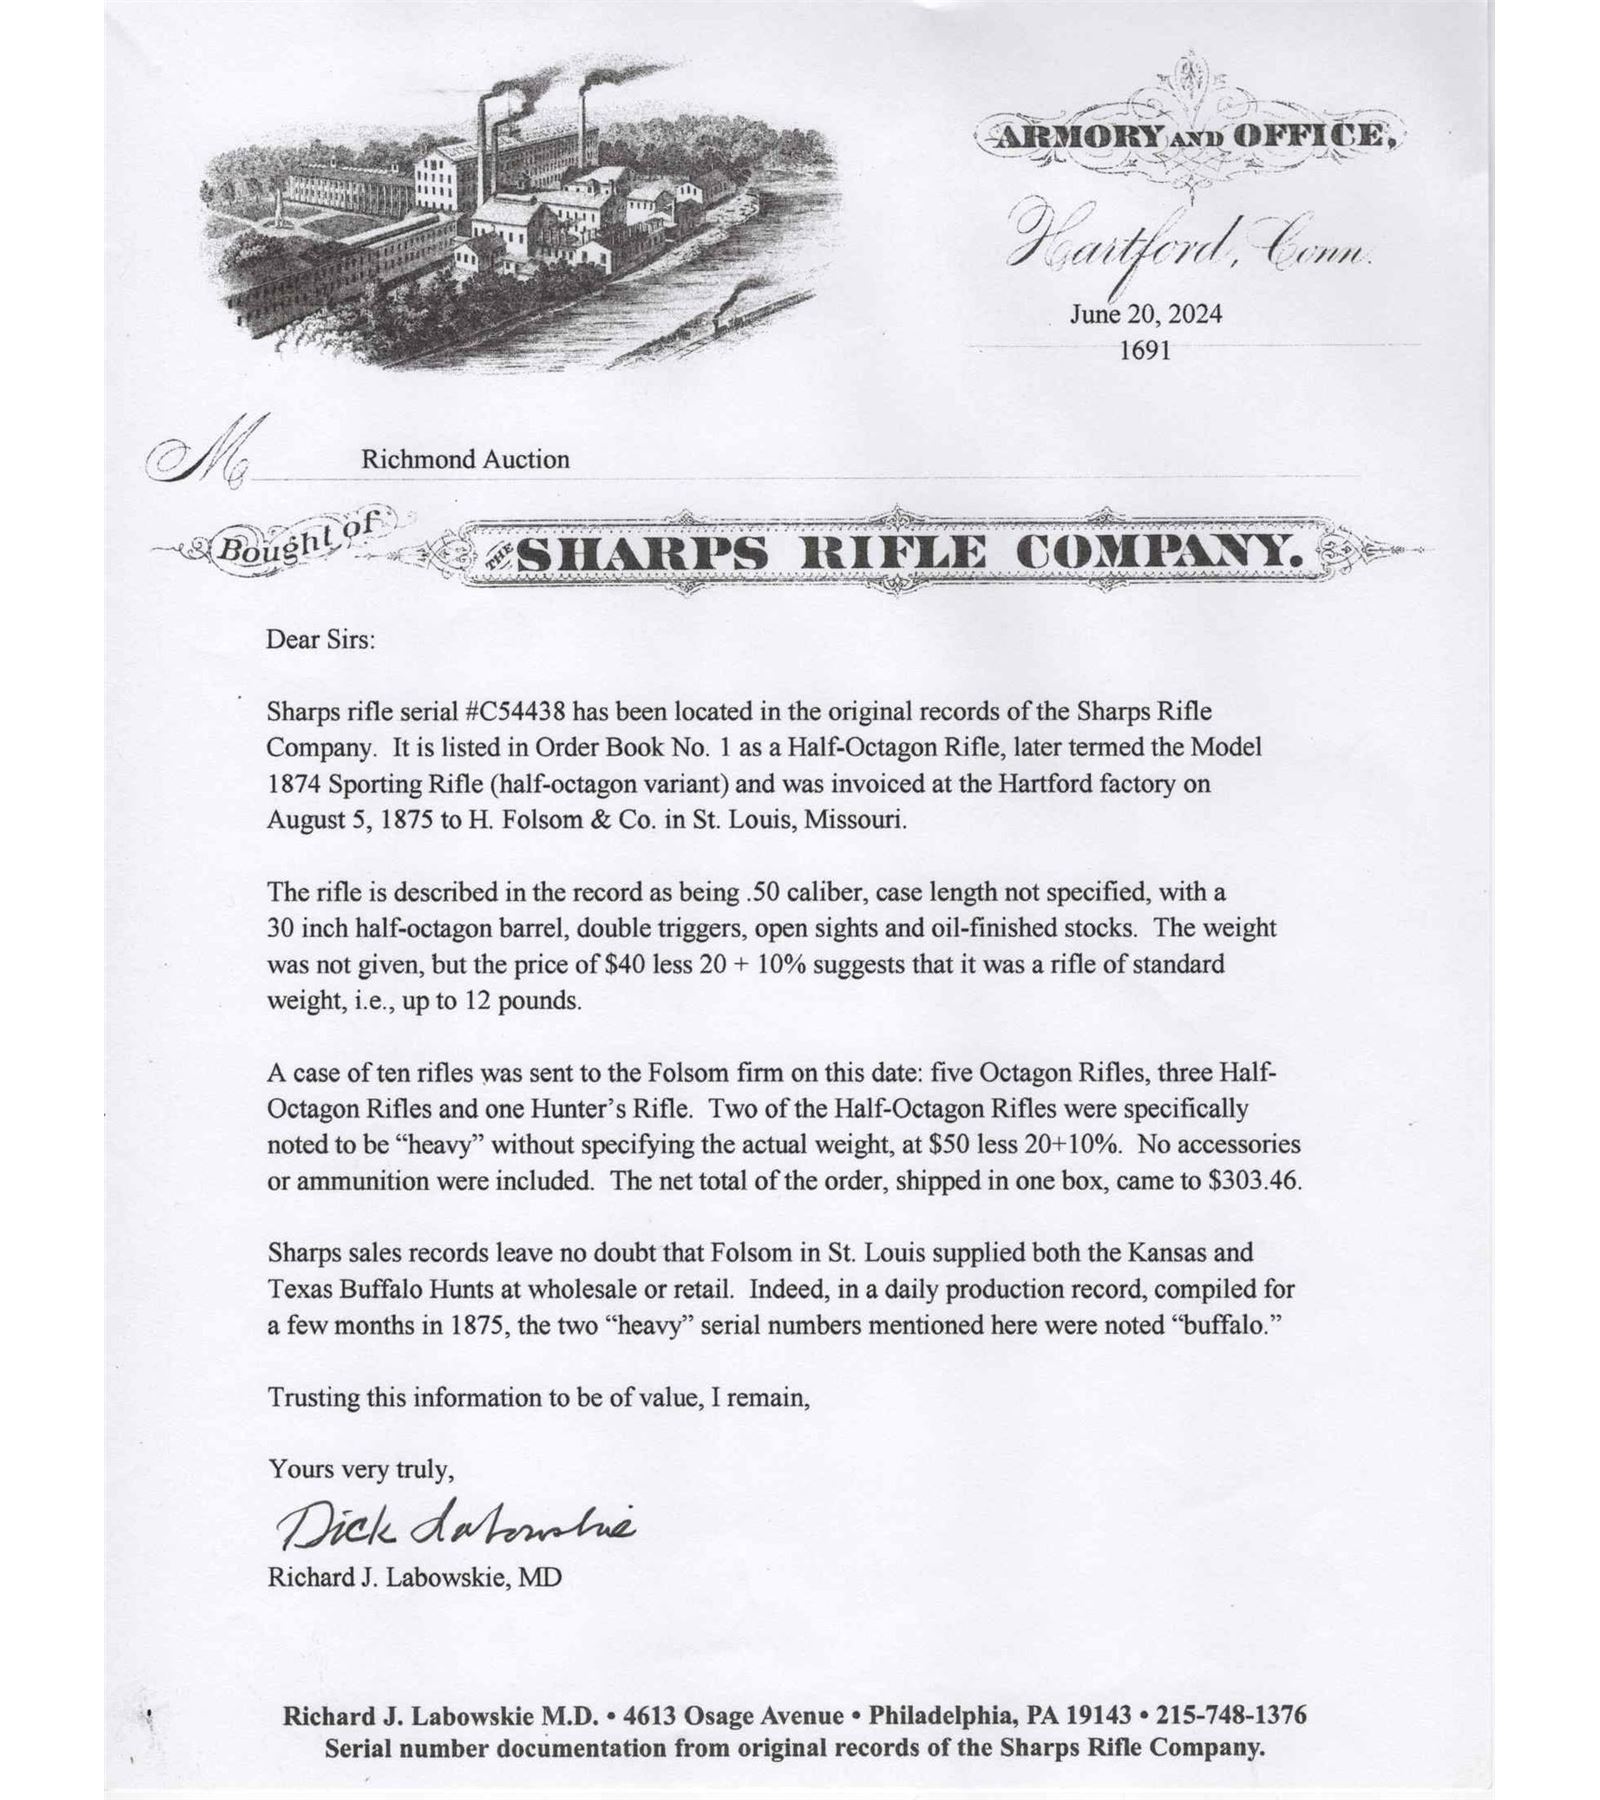 ARMORY AND OFFICE,
Hartford, Conn.
June 20, 2024
1691
M Richmond Auction
Bought of THE SHARPS RIFLE COMPANY.
Dear Sirs:
Sharps rifle serial #C54438 has been located in the original records of the Sharps Rifle
Company. It is listed in Order Book No. 1 as a Half-Octagon Rifle, later termed the Model
1874 Sporting Rifle (half-octagon variant) and was invoiced at the Hartford factory on
August 5, 1875 to H. Folsom & Co. in St. Louis, Missouri.
The rifle is described in the record as being .50 caliber, case length not specified, with a
30 inch half-octagon barrel, double triggers, open sights and oil-finished stocks. The weight
was not given, but the price of $40 less 20 + 10% suggests that it was a rifle of standard
weight, i.e., up to 12 pounds.
A case of ten rifles was sent to the Folsom firm on this date: five Octagon Rifles, three Half-
Octagon Rifles and one Hunter's Rifle. Two of the Half-Octagon Rifles were specifically
noted to be “heavy” without specifying the actual weight, at $50 less 20+10%. No accessories
or ammunition were included. The net total of the order, shipped in one box, came to $303.46.
Sharps sales records leave no doubt that Folsom in St. Louis supplied both the Kansas and
Texas Buffalo Hunts at wholesale or retail. Indeed, in a daily production record, compiled for
a few months in 1875, the two “heavy” serial numbers mentioned here were noted “buffalo.”
Trusting this information to be of value, I remain,
Yours very truly,
Dick Labowskie
Richard J. Labowskie, MD
Richard J. Labowskie M.D. • 4613 Osage Avenue • Philadelphia, PA 19143 • 215-748-1376
Serial number documentation from original records of the Sharps Rifle Company.